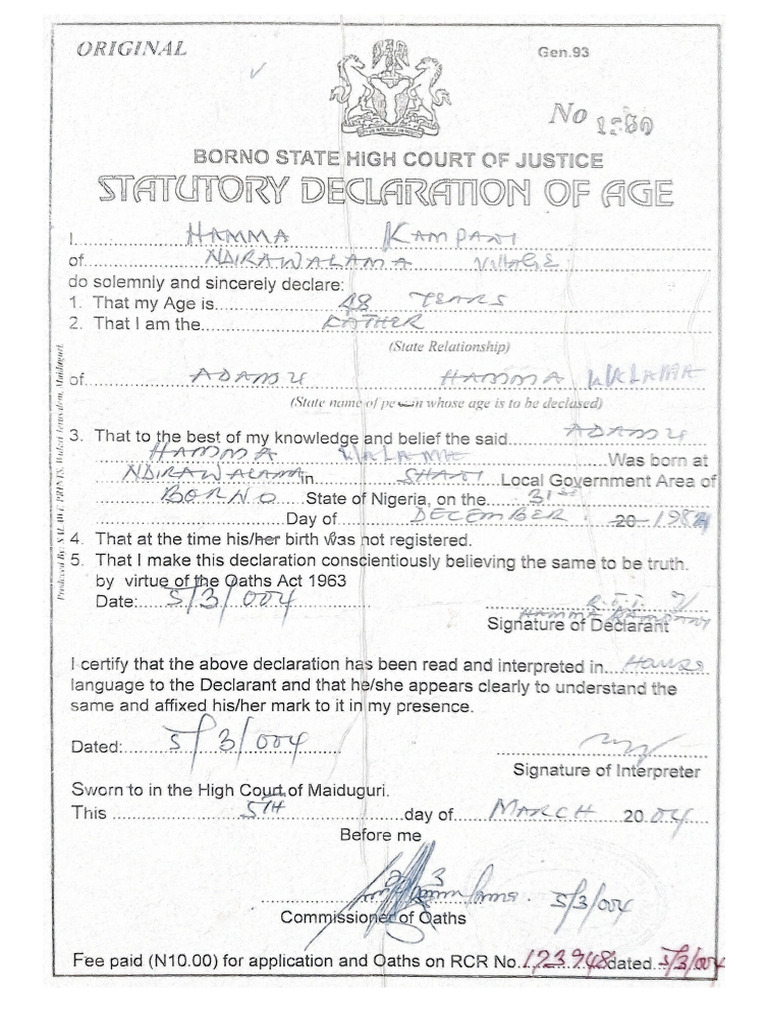 ORIGINAL
Gen.93
No 1380
BORNO STATE HIGH COURT OF JUSTICE
STATUTORY DECLARATION OF AGE
I HAMMA KAMPANI
of NDIRAWALAMA VILLAGE
do solemnly and sincerely declare:
1. That my Age is 48 YEARS
2. That I am the FATHER
(State Relationship)
of ADAMU HAMMA WALAMA
(State name of person whose age is to be declased)
3. That to the best of my knowledge and belief the said ADAMU
HAMMA WALAMA Was born at
NDIRAWALAMA in SHANI Local Government Area of
BORNO State of Nigeria, on the 31st
Day of DECEMBER 20 198
4. That at the time his/her birth was not registered.
5. That I make this declaration conscientiously believing the same to be truth.
by virtue of the Oaths Act 1963
Date: 5/3/004
HAMMA KAMPANI
Signature of Declarant
I certify that the above declaration has been read and interpreted in Hausa
language to the Declarant and that he/she appears clearly to understand the
same and affixed his/her mark to it in my presence.
Dated: 5/3/004
Signature of Interpreter
Sworn to in the High Court of Maiduguri.
This 5TH day of MARCH 2004
Before me
5/3/004
Commissioner of Oaths
Fee paid (N10.00) for application and Oaths on RCR No. 123948 dated 5/3/004
Produced By: SALAWE PRINTS, Wulari Jerusalem, Maiduguri.